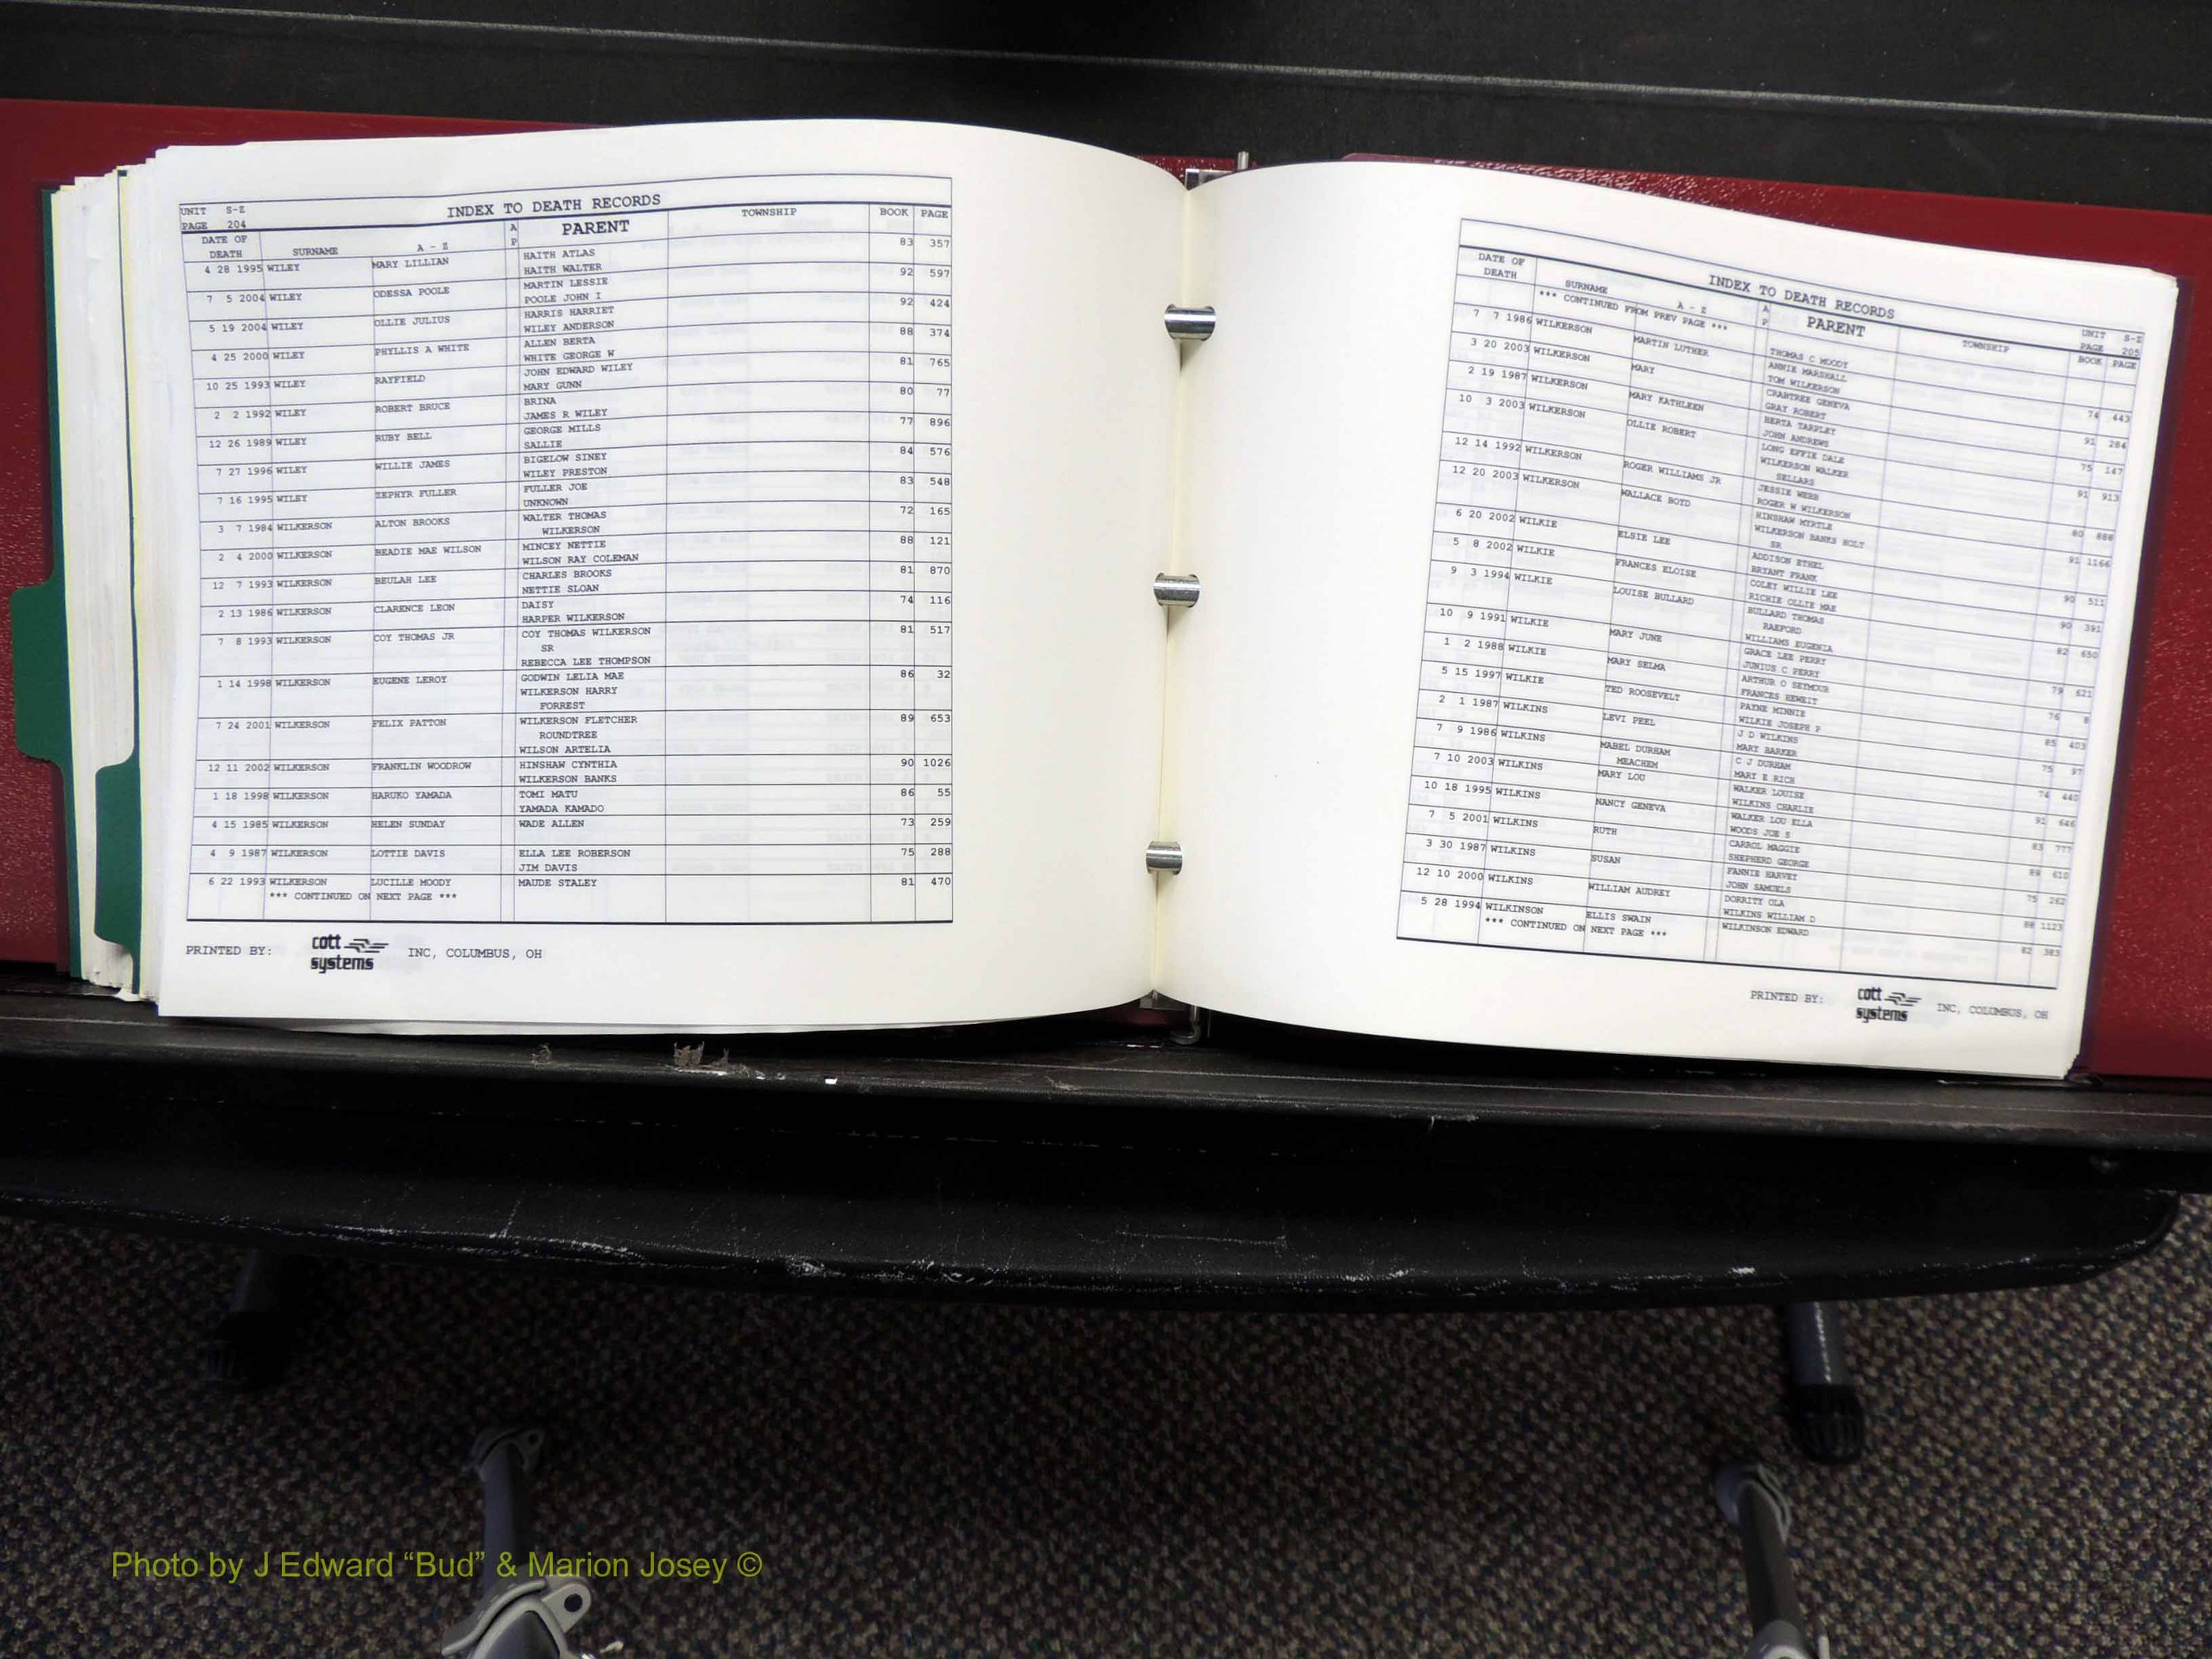 UNIT S-Z
PAGE 204
INDEX TO DEATH RECORDS
DATE OF DEATH SURNAME A - Z A P PARENT TOWNSHIP BOOK PAGE
4 28 1995 WILEY MARY LILLIAN HAITH ATLAS 83 357
HAITH WALTER
7 5 2004 WILEY ODESSA POOLE MARTIN LESSIE 92 597
POOLE JOHN I
5 19 2004 WILEY OLLIE JULIUS HARRIS HARRIET 92 424
WILEY ANDERSON
4 25 2000 WILEY PHYLLIS A WHITE ALLEN BERTA 88 374
WHITE GEORGE W
10 25 1993 WILEY RAYFIELD JOHN EDWARD WILEY 81 765
MARY GUNN
2 2 1992 WILEY ROBERT BRUCE BRINA 80 77
JAMES R WILEY
12 26 1989 WILEY RUBY BELL GEORGE MILLS 77 896
SALLIE
7 27 1996 WILEY WILLIE JAMES BIGELOW SINEY 84 576
WILEY PRESTON
7 16 1995 WILEY ZEPHYR FULLER FULLER JOE 83 548
UNKNOWN
3 7 1984 WILKERSON ALTON BROOKS WALTER THOMAS 72 165
WILKERSON
2 4 2000 WILKERSON BEADIE MAE WILSON MINCEY NETTIE 88 121
WILSON RAY COLEMAN
12 7 1993 WILKERSON BEULAH LEE CHARLES BROOKS 81 870
NETTIE SLOAN
2 13 1986 WILKERSON CLARENCE LEON DAISY 74 116
HARPER WILKERSON
7 8 1993 WILKERSON COY THOMAS JR COY THOMAS WILKERSON 81 517
SR
REBECCA LEE THOMPSON
1 14 1998 WILKERSON EUGENE LEROY GODWIN LELIA MAE 86 32
WILKERSON HARRY
FORREST
7 24 2001 WILKERSON FELIX PATTON WILKERSON FLETCHER 89 653
ROUNDTREE
WILSON ARTELIA
12 11 2002 WILKERSON FRANKLIN WOODROW HINSHAW CYNTHIA 90 1026
WILKERSON BANKS
1 18 1998 WILKERSON HARUKO YAMADA TOMI MATU 86 55
YAMADA KAMADO
4 15 1985 WILKERSON HELEN SUNDAY WADE ALLEN 73 259
4 9 1987 WILKERSON LOTTIE DAVIS ELLA LEE ROBERSON 75 288
JIM DAVIS
6 22 1993 WILKERSON LUCILLE MOODY MAUDE STALEY 81 470
*** CONTINUED ON NEXT PAGE ***
PRINTED BY: cott systems INC, COLUMBUS, OH
INDEX TO DEATH RECORDS
UNIT S-Z
PAGE 205
DATE OF DEATH SURNAME A - Z A P PARENT TOWNSHIP BOOK PAGE
*** CONTINUED FROM PREV PAGE ***
THOMAS C MOODY
7 7 1986 WILKERSON MARTIN LUTHER ANNIE MARSHALL 74 443
TOM WILKERSON
3 20 2003 WILKERSON MARY CRABTREE GENEVA 91 284
GRAY ROBERT
2 19 1987 WILKERSON MARY KATHLEEN BERTA TARPLEY 75 147
JOHN ANDREWS
10 3 2003 WILKERSON OLLIE ROBERT LONG EFFIE DALE 91 913
WILKERSON WALKER
SELLARS
12 14 1992 WILKERSON ROGER WILLIAMS JR JESSIE WEBB 80 888
ROGER W WILKERSON
12 20 2003 WILKERSON WALLACE BOYD HINSHAW MYRTLE 91 1166
WILKERSON BANKS HOLT
SR
6 20 2002 WILKIE ELSIE LEE ADDISON ETHEL 90 511
BRYANT FRANK
5 8 2002 WILKIE FRANCES ELOISE COLEY WILLIE LEE 90 391
RICHIE OLLIE MAE
9 3 1994 WILKIE LOUISE BULLARD BULLARD THOMAS 82 650
RAEFORD
WILLIAMS EUGENIA
10 9 1991 WILKIE MARY JUNE GRACE LEE PERRY 79 621
JUNIUS C PERRY
1 2 1988 WILKIE MARY SELMA ARTHUR O SEYMOUR 76 8
FRANCES HEWEIT
5 15 1997 WILKIE TED ROOSEVELT PAYNE MINNIE 85 403
WILKIE JOSEPH P
2 1 1987 WILKINS LEVI PEEL J D WILKINS 75 97
MARY BARKER
7 9 1986 WILKINS MABEL DURHAM C J DURHAM 74 440
MEACHEM MARY E RICH
7 10 2003 WILKINS MARY LOU WALKER LOUISE 91 646
WILKINS CHARLIE
10 18 1995 WILKINS NANCY GENEVA WALKER LOU ELLA 83 777
WOODS JOE S
7 5 2001 WILKINS RUTH CARROL MAGGIE 89 610
SHEPHERD GEORGE
3 30 1987 WILKINS SUSAN FANNIE HARVEY 75 262
JOHN SAMUELS
12 10 2000 WILKINS WILLIAM AUDREY DORRITY OLA 88 1123
WILKINS WILLIAM D
5 28 1994 WILKINSON ELLIS SWAIN WILKINSON EDWARD 82 383
*** CONTINUED ON NEXT PAGE ***
PRINTED BY: cott systems INC, COLUMBUS, OH
Photo by J Edward “Bud” & Marion Josey ©